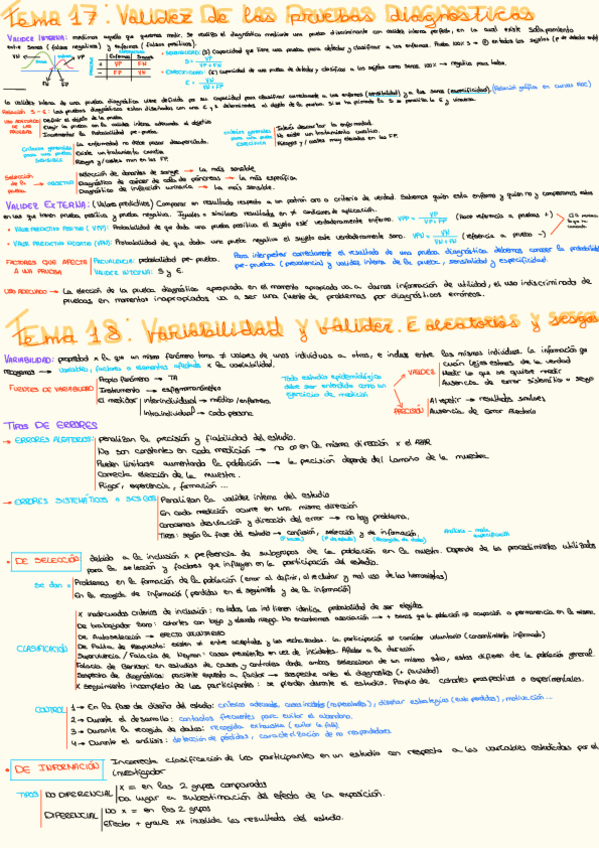 Tema 17: Validez de las pruebas diagnósticas
VALIDEZ INTERNA: medimos aquello que queremos medir. Se realiza el diagnóstico mediante una prueba discriminante con validez interna perfecta, en la cual existe solapamiento
entre sanos (falsos negativos) y enfermos (falsos positivos).
• SENSIBILIDAD (S) Capacidad que tiene una prueba para detectar y clasificar a los enfermos. Prueba 100% S → ⊕ en todos los sujetos
VN VP
Enfermos Sanos
+ VP FN
- FP VN
S = VP / VP + FN
• ESPECIFICIDAD: (E) capacidad de una prueba de detectar y clasificar a los sujetos como sanos. 100% → negativa para todos.
E = VN / VN + FP
La validez interna de una prueba diagnóstica viene definida por su capacidad para clasificar correctamente a los enfermos (sensibilidad) y a los sanos (especificidad) (Relación gráfica en curvas ROC)
Relación S - E: Las pruebas diagnósticas están diseñadas con una E y S determinadas al objeto de la prueba. Si se ha primado la S se penaliza la E y viceversa.
USO ADECUADO DE LAS PRUEBAS
Definir el objeto de la prueba
Elegir la prueba en la validez interna adecuada al objetivo
Incrementar la probabilidad pre-prueba.
Criterios generales para una prueba SENSIBLE
La enfermedad no debe pasar desapercibida.
Existe un tratamiento cambia
Riesgos y/costes min en los FP.
Criterios generales para una prueba ESPECÍFICA
Interés descartar la enfermedad.
No existe un tratamiento curativo.
Riesgos y/ costes muy elevados en los FP.
Selección de la prueba → OBJETIVO
Selección de donantes de sangre → La más sensible
Diagnóstico de cáncer de cola de páncreas → La más específica
Diagnóstico de infección urinaria → La más sensible.
VALIDEZ EXTERNA: (Valores predictivos) Comparar en resultado respecto a un patrón oro o criterio de verdad. Sabemos quién está enfermo y quién no y comparamos estos
en los que tienen prueba positiva y prueba negativa. Iguales o similares resultados en ≠ condiciones de aplicación.
• VALOR PREDICTIVO POSITIVO (VPP): Probabilidad de que dada una prueba positiva el sujeto esté verdaderamente enfermo. VPP = VP / VP + FP (hace referencia a pruebas +)
• VALOR PREDICTIVO NEGATIVO (VPN): Probabilidad de que dada una prueba negativa el sujeto esté verdaderamente sano. VPN = VN / VN + FN (referencia a prueba -)
FACTORES QUE AFECTAN A UNA PRUEBA
PREVALENCIA: probabilidad pre-prueba.
VALIDEZ INTERNA: S y E.
Para interpretar correctamente el resultado de una prueba diagnóstica debemos conocer la probabilidad
pre-prueba (prevalencia) y validez interna de la prueba, sensibilidad y especificidad.
USO ADECUADO → La elección de la prueba diagnóstica apropiada en el momento apropiado va a darnos información de utilidad, el uso indiscriminado de
pruebas en momentos inapropiados va a ser una fuente de problemas por diagnósticos erróneos.
Tema 18: Variabilidad y validez. E aleatorios y sesgos
VARIABILIDAD: propiedad x la que un mismo fenómeno toma ≠ valores de unos individuos a otros, e incluso entre los mismos individuos. La información que
recogemos → variables, factores o elementos afectados x la variabilidad.
FUENTES DE VARIABILIDAD
Propio fenómeno → TA
Instrumento → esfigmomanómetro
El medidor
interindividual → médico/enfermera
Intraindividual → cada persona
Todo estudio epidemiológico debe ser entendido como un ejercicio de medición
VALIDEZ
cuán lejos estamos de la verdad
Medir lo que se quiere medir
Ausencia de error sistemático o sesgo
PRECISIÓN
Al repetir → resultados similares
Ausencia de error aleatorio
TIPOS DE ERRORES
→ ERRORES ALEATORIOS:
penalizan la precisión y fiabilidad del estudio.
No son constantes en cada medición → no es en la misma dirección x el AZAR
Pueden limitarse aumentando la población → la precisión depende del tamaño de la muestra.
Correcta elección de la muestra.
Rigor, experiencia, formación...
→ ERRORES SISTEMÁTICOS O SESGOS
Penalizan la validez interna del estudio
En cada medición ocurre en una misma dirección
Conocemos desviación y dirección del error → no hay problema.
Tipos: según la fase del estudio → confusión, selección y de información.
Análisis - mala especificación
• DE SELECCIÓN
debido a la inclusión x preferencia de subgrupos de la población en la muestra. Depende de los procedimientos utilizados
para la selección y factores que influyen en la participación del estudio.
Se dan x
Problemas en la formación de la población (error al definir, al reclutar y mal uso de las herramientas)
En la recogida de información (perdidas en el seguimiento y de la información)
CLASIFICACIÓN
x inadecuados criterios de inclusión: no todos los ind tienen idéntica probabilidad de ser elegidos
De trabajador sano: cohortes con bajo y elevado riesgo. No encontramos asociación → + sanos que la población su ocupación o permanencia en la misma.
De Autoselección → EFECTO VOLUNTARIO
De Falta de Respuesta: existen ≠ entre aceptadas y las rechazadas. La participación es carácter voluntario (consentimiento informado)
Supervivencia / Falacia de Neyman: casos prevalentes en vez de incidentes. Afectar a la duración
Falacia de Berkson: en estudios de casos y controles donde ambos seleccionan de un mismo sitio, estos difieren de la población general.
Sospecha de diagnóstico: paciente expuesto a factor → sospecha ante el diagnóstico (+ facilidad)
x seguimiento incompleto de los participantes: se pierden durante el estudio. Propio de cohortes prospectivos o experimentales.
CONTROL
1 → En la fase de diseño del estado: criterios adecuados, casos incidentes (no prevalentes), diseñar estrategias (evite perdidas), motivación...
2 → Durante el desarrollo: contactos frecuentes para evitar el abandono.
3 → Durante la recogida de datos: recogida exhaustiva (evitar la falta)
4 → Durante el análisis: detección de pérdidas, caracterización de no respondedores
• DE INFORMACIÓN
Incorrecta clasificación de los participantes en un estudio con respecto a las variables estudiadas por el
investigador
TIPOS
NO DIFERENCIAL
x = en las 2 grupos comparados
Da lugar a subestimación del efecto de la exposición.
DIFERENCIAL
No x = en las 2 grupos
Efecto + grave xx invalida los resultados del estudio.